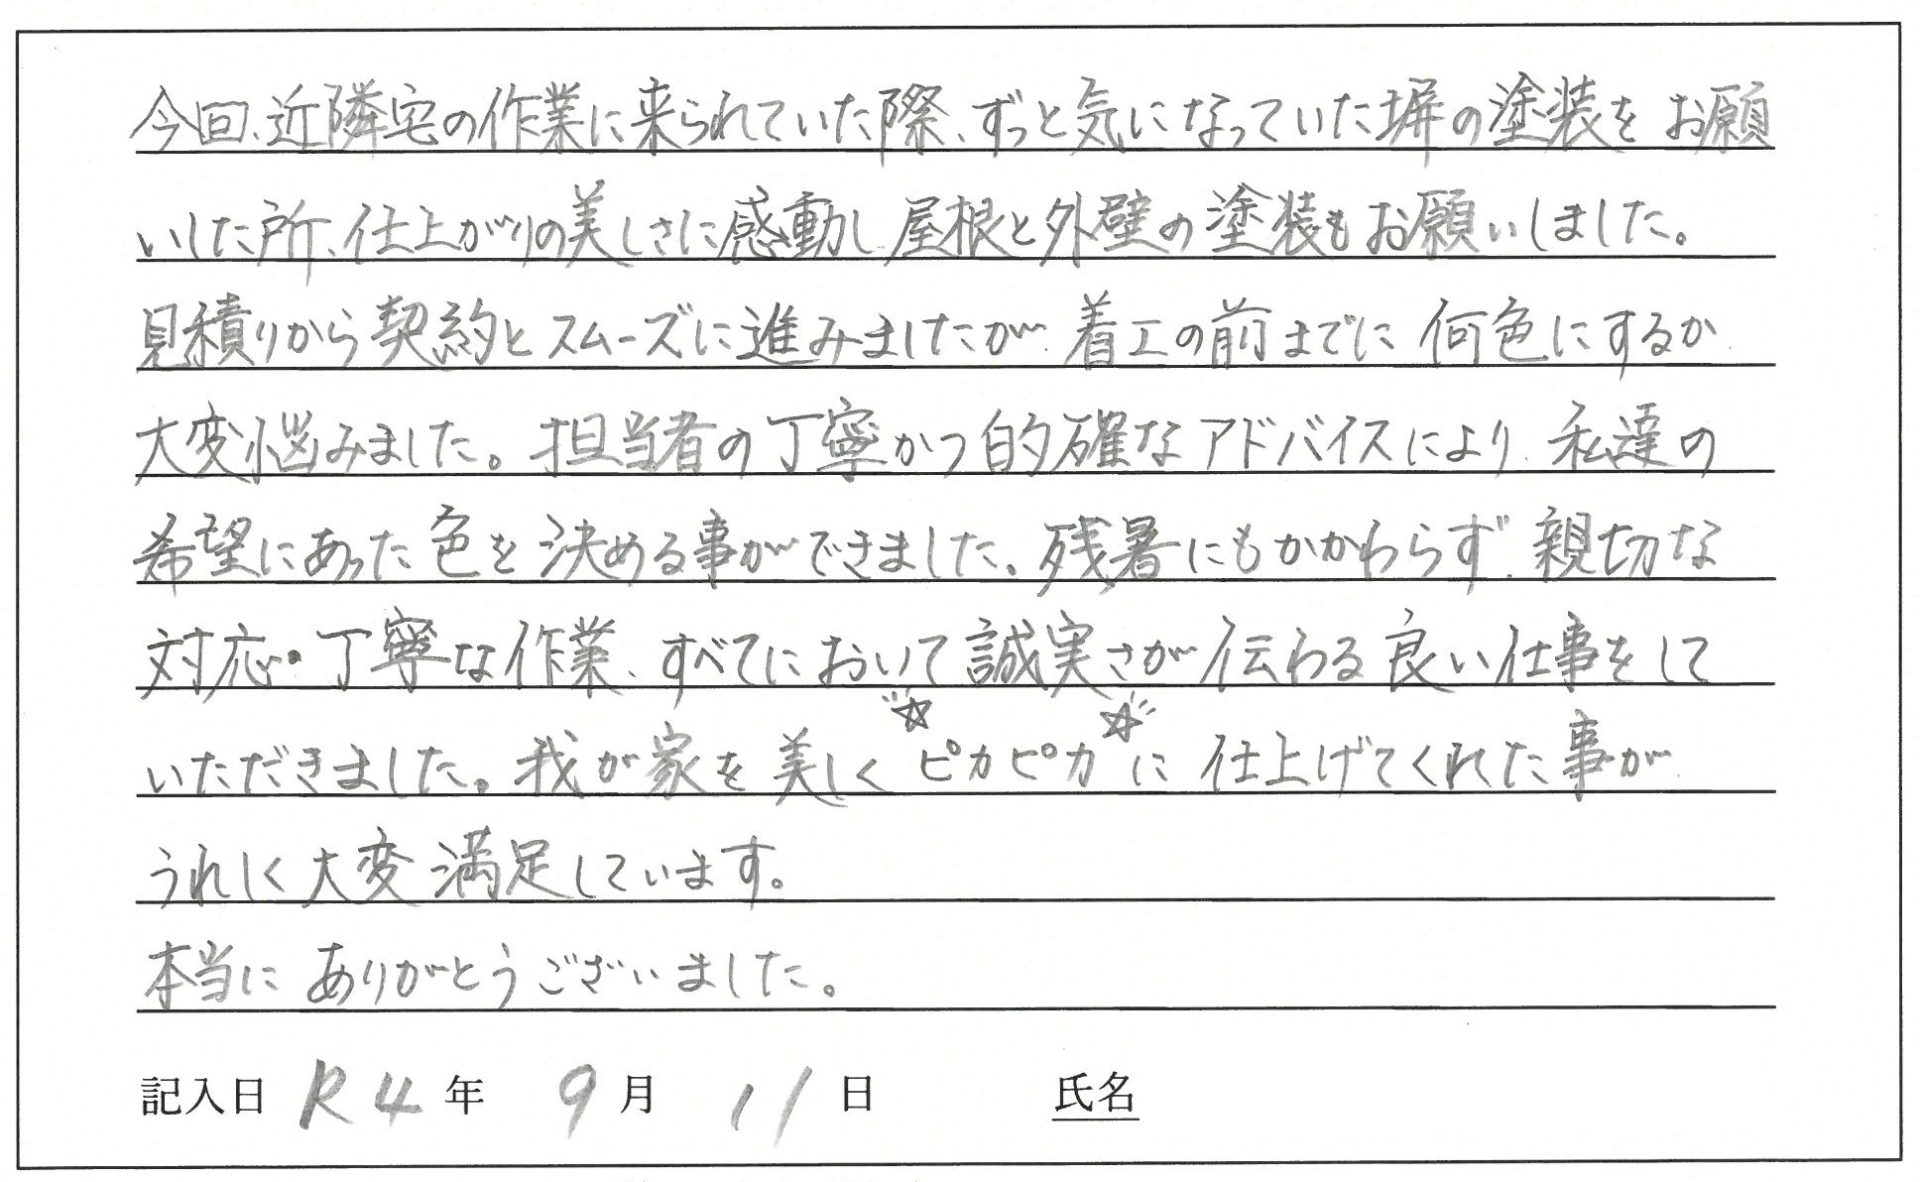 今回、近隣宅の作業に来られていた際、ずっと気になっていた塀の塗装をお願
いした所、仕上がりの美しさに感動し、屋根と外壁の塗装もお願いしました。
見積りから契約とスムーズに進みましたが、着工の前までに何色にするか
大変悩みました。担当者の丁寧かつ的確なアドバイスにより、私達の
希望にあった色を決める事ができました。残暑にもかかわらず、親切な
対応・丁寧な作業、すべてにおいて誠実さが伝わる良い仕事をして
いただきました。我が家を美しく☆ピカピカ☆に仕上げてくれた事が
うれしく大変満足しています。
本当にありがとうございました。
記入日 R4年 9月 11日 氏名